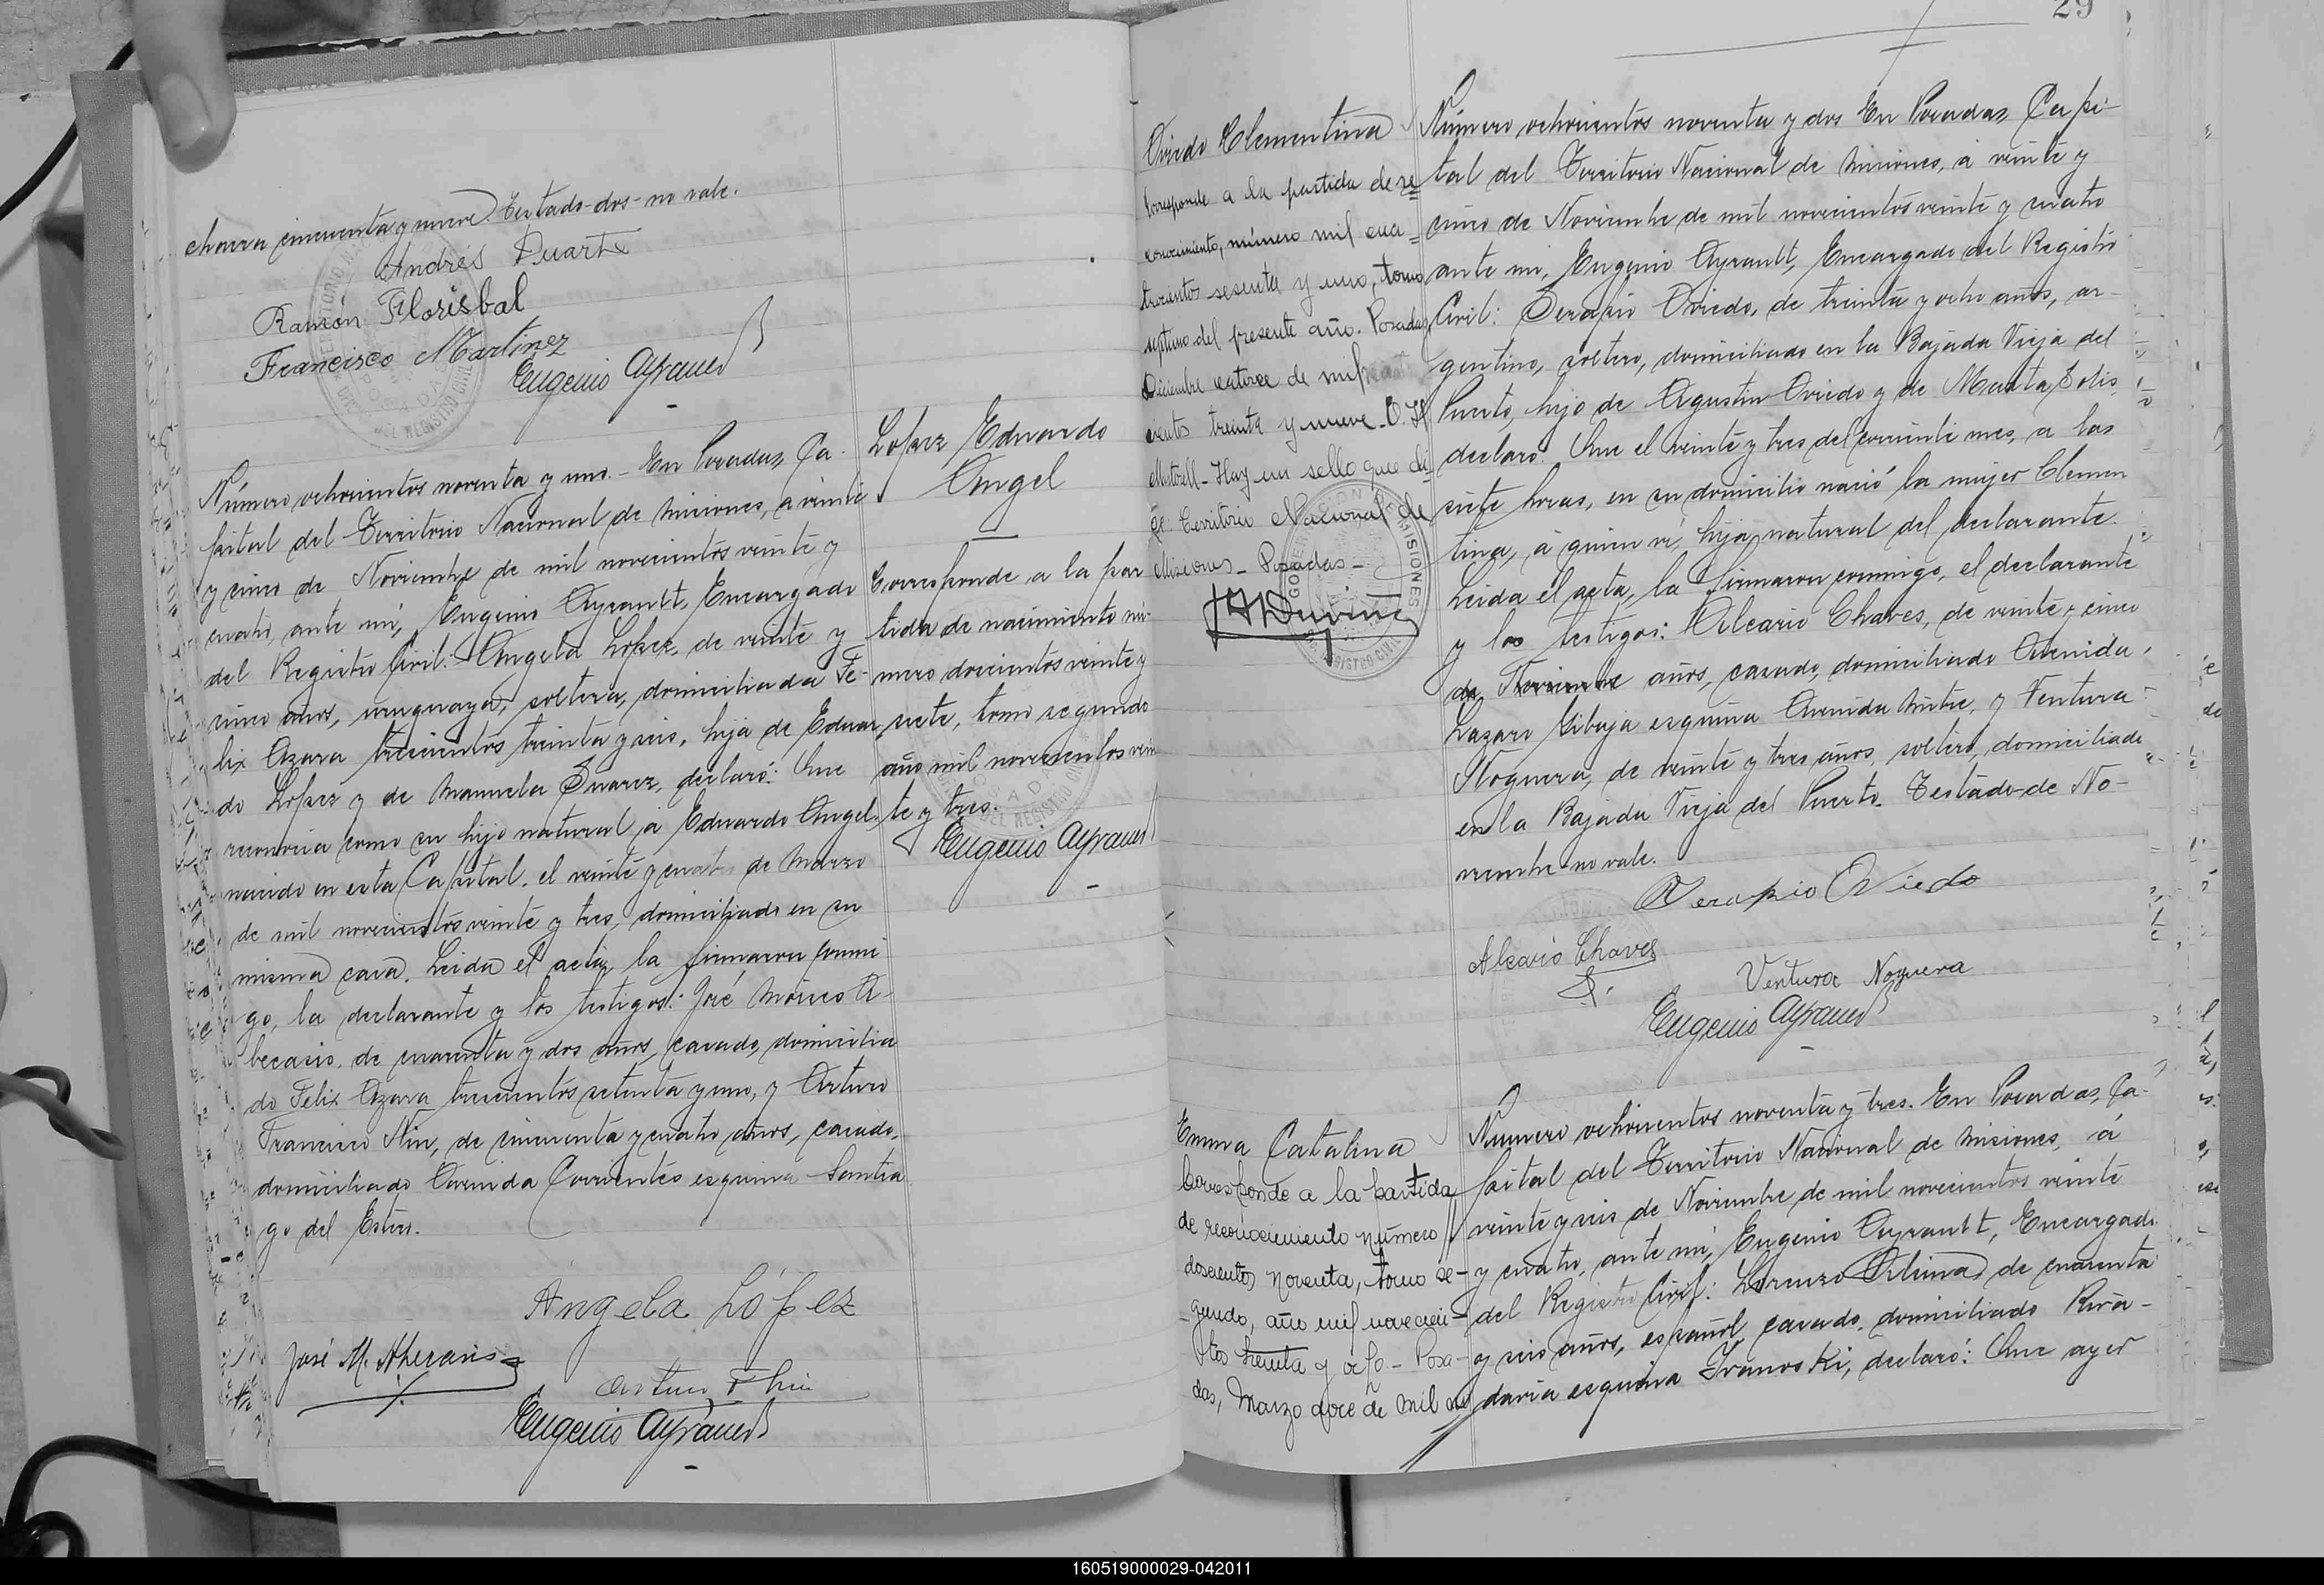 chacra cincuenta y nueve. Testado-dos-no vale.
Andrés Duarte
Ramón Florisbal
Francisco Martínez
Eugenio Ayrault
Número ochocientos noventa y uno.- En Posadas, Ca-
pital del Territorio Nacional de Misiones, a veinte
y cinco de Noviembre de mil novecientos veinte y
cuatro, ante mí, Eugenio Ayrault, Encargado
del Registro Civil: Angela Lopez, de veinte y
cinco años, uruguaya, soltera, domiciliada Fe-
lix Azara trescientos treinta y seis, hija de Eduar
do Lopez y de Manuela Suarez, declaró: Que
reconocia como su hijo natural, a Eduardo Angel,
nacido en esta Capital, el veinte y cuatro de Marzo
de mil novecientos veinte y tres, domiciliado en su
misma casa. Leida el acta, la firmaron conmi
go, la declarante y los testigos: José Moises A-
becasis, de cuarenta y dos años, casado, domicilia
do Felix Azara trescientos setenta y uno, y Arturo
Francisco Nin, de cincuenta y cuatro años, casado,
domiciliado Avenida Corrientes esquina Santia
go del Estero.
Angela López
José M. Abecasis
Arturo F Nin
Eugenio Ayrault
Lopez Eduardo
Angel
Corresponde a la par
tida de nacimiento nú-
mero doscientos veinte y
siete, tomo segundo
año mil novecientos vein
te y tres.
Eugenio Ayrault
29
Oviedo Clementina
Corresponde a la partida de re
conocimiento, número mil cua
trocientos sesenta y uno, tomo
septimo del presente año. Posadas
Diciembre catorce de mil
cientos treinta y nueve. O. H.
Hay un sello que di
ce: Territorio Nacional de
Misiones - Posadas -
GOBERNACION DE MISIONES
REGISTRO CIVIL
Número ochocientos noventa y dos En Posadas, Capi-
tal del Territorio Nacional de Misiones, á veinte y
cinco de Noviembre de mil novecientos veinte y cuatro
ante mi, Eugenio Ayrault, Encargado del Registro
Civil: Serapio Oviedo, de treinta y ocho años, ar-
gentino, soltero, domiciliado en la Bajada Vieja del
Puerto, hijo de Agustin Oviedo y de Marta Solis,
declaró: Que el veinte y tres del corriente mes, a las
siete horas, en su domicilio nació la mujer Clemen
tina, á quien ví, hija natural del declarante.
Leida el acta, la firmaron conmigo, el declarante
y los testigos: Alcario Chaves, de veinte y cinco
de Noviembre años, casado, domiciliado Avenida
Lazaro Gibaja esquina Avenida Mitre, y Ventura
Noguera, de veinte y tres años, soltero, domiciliado
en la Bajada Vieja del Puerto. Testado-de No-
viembre-no vale.
Serapio Oviedo
Alcario Chaves
Ventura Noguera
Eugenio Ayrault
Emma Catalina
Corresponde a la partida
de reconocimiento número
doscientos noventa, tomo se-
gundo, año mil novecien-
tos treinta y ocho - Posa-
das, Marzo doce de mil no
Numero ochocientos noventa y tres. En Posadas, Ca-
pital del Territorio Nacional de Misiones, á
veinte y seis de Noviembre de mil novecientos veinte
y cuatro, ante mí, Eugenio Ayrault, Encargado
del Registro Civil: Lorenzo de cuarenta
y seis años, español, casado, domiciliado Riva-
davia esquina Ivanoski, declaró: Que ayer
160519000029-042011